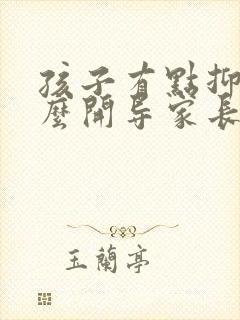 孩子有點抑
麼開导家長
玉蘭亭